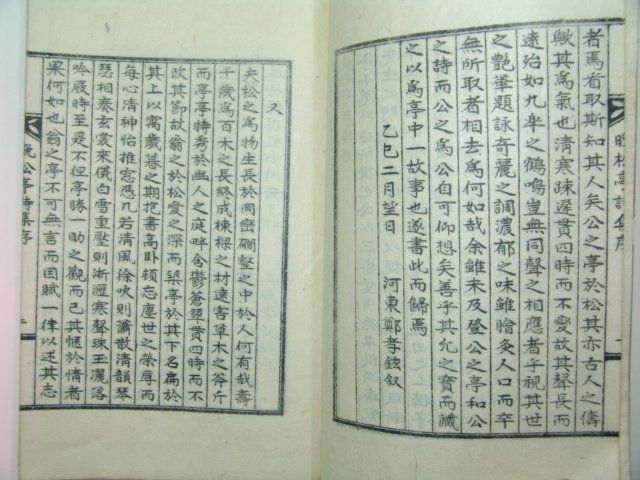 者焉者取斯知其人矣公之亭於松其亦古人之儔
歟其爲氣也淸寒踈遲貫四時而不變故其聲長而
遠殆如九皐之鶴鳴豈無同聲之相應者乎視其世
之艶筆題詠奇麗之調濃郁之味雖膾炙人口而卒
無所取者相去爲何如哉余雖未及登公之亭和公
之詩而公之爲公自可仰想矣善乎其允之寶而藏
之以爲亭中一故事也遂書此而歸焉
乙巳二月望日
河東鄭孝鉉叙
晩松亭詩集序
又
夫松之爲物生長於岡巒磵壑之中於人何有哉壽
千歲爲百木之長終成棟樑之材遠害草木之斧斤
而亭亭特考於幽人之庭畔含鬱蒼翠貫四時而不
改其節故翁之於松愛之深而築亭於其下名扁於
其上以寓歲暮之期抱書高臥頓忘塵世之榮辱而
每心淸神怡推窓憑几若淸風徐吹則蕭散淸韻琴
瑟相奏玄裳來儀白雪重壓則淅瀝寒聲珠玉灑落
吟屐時至是不但亭勝一助之觀而已其愜於情者
果何如也翁之亭不可無言而因賦一律以述其志
晩松亭詩集序
二